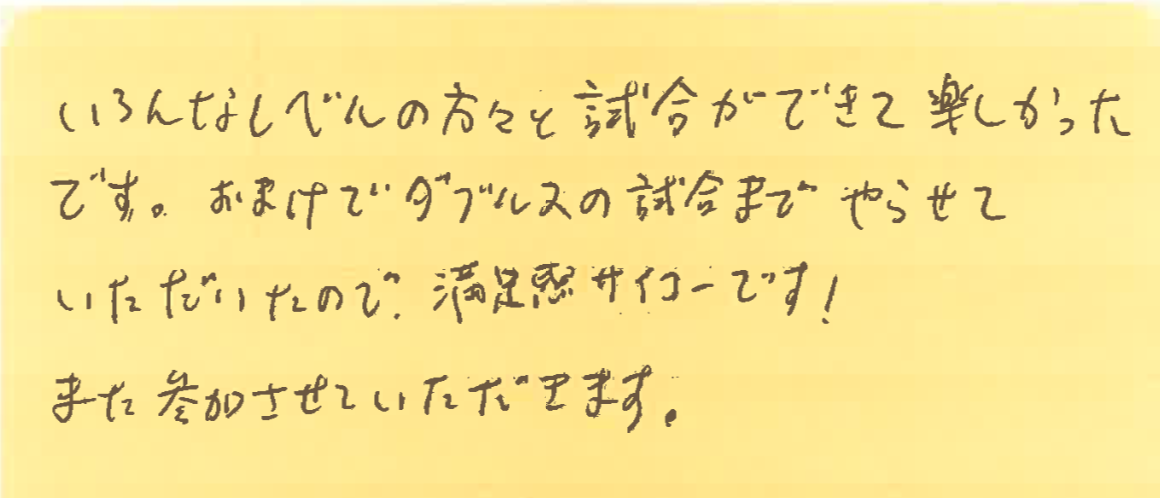 いろんなレベルの方々と試合ができて楽しかった
です。おまけでダブルスの試合まで やらせて
いただいたので、満足感サイコーです!
また参加させていただきます。